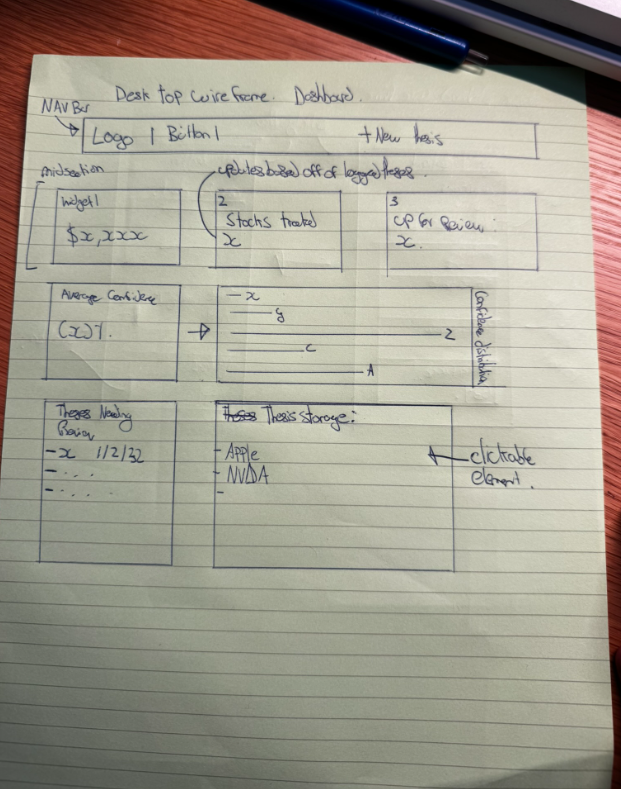 Desktop wireframe. Dashboard.
NAV Bar
Logo | Button |
+ New thesis
midsection
updates based off of logged theses.
widget 1
$x,xxx
2
Stocks tracked
x
3
UP for Review:
x.
Average Confidence
(x)%.
- x
y
z
c
A
Confidence distribution
Theses Needing
Review
- x 1/2/32
- . . .
- . . . .
Theses Thesis storage:
- Apple
- NVDA
-
clickable
element.